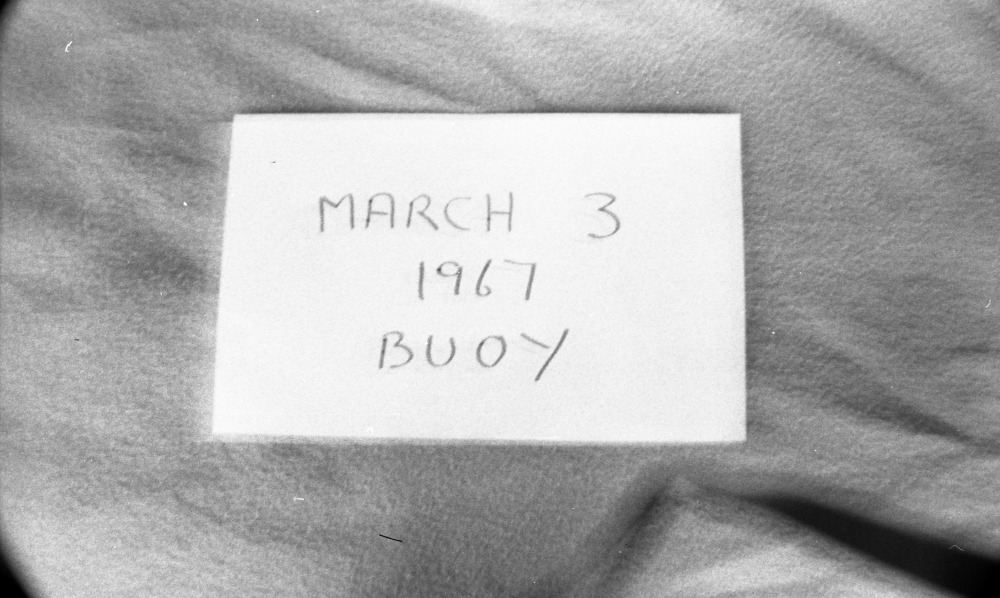 MARCH 3
1967
BUOY